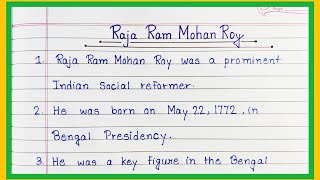 Raja Ram Mohan Roy
1. Raja Ram Mohan Roy was a prominent
Indian Social reformer.
2. He was born on May 22, 1772, in
Bengal Presidency.
3. He was a key figure in the Bengal